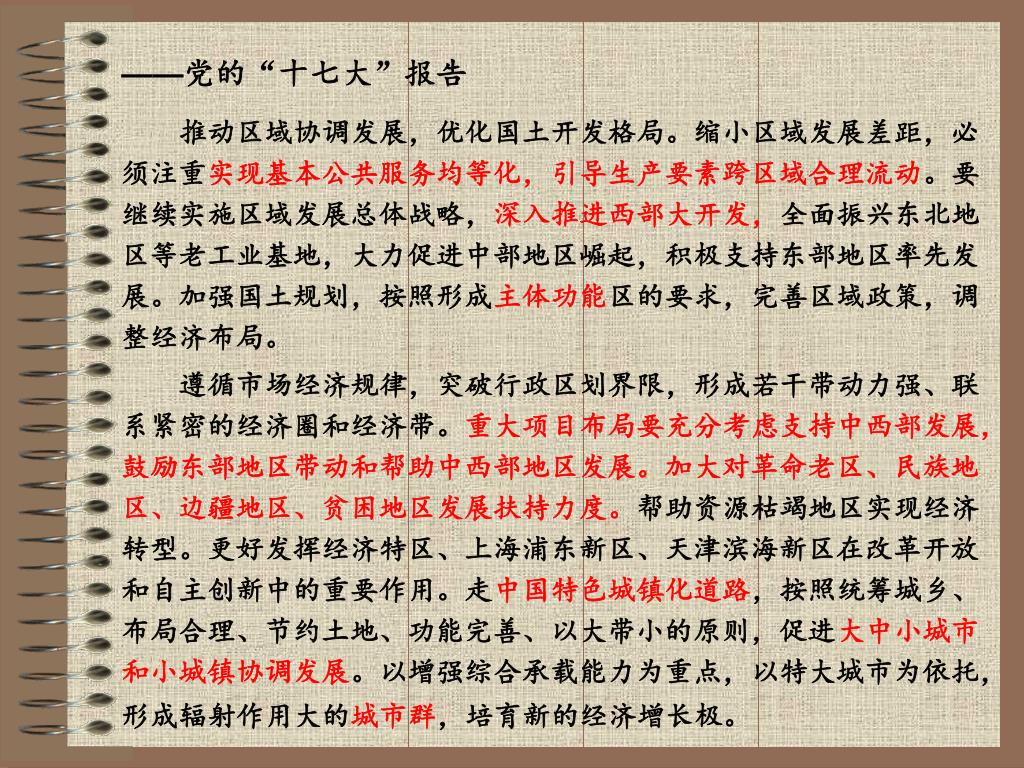 ——党的“十七大”报告
推动区域协调发展，优化国土开发格局。缩小区域发展差距，必
须注重实现基本公共服务均等化，引导生产要素跨区域合理流动。要
继续实施区域发展总体战略，深入推进西部大开发，全面振兴东北地
区等老工业基地，大力促进中部地区崛起，积极支持东部地区率先发
展。加强国土规划，按照形成主体功能区的要求，完善区域政策，调
整经济布局。
遵循市场经济规律，突破行政区划界限，形成若干带动力强、联
系紧密的经济圈和经济带。重大项目布局要充分考虑支持中西部发展，
鼓励东部地区带动和帮助中西部地区发展。加大对革命老区、民族地
区、边疆地区、贫困地区发展扶持力度。帮助资源枯竭地区实现经济
转型。更好发挥经济特区、上海浦东新区、天津滨海新区在改革开放
和自主创新中的重要作用。走中国特色城镇化道路，按照统筹城乡、
布局合理、节约土地、功能完善、以大带小的原则，促进大中小城市
和小城镇协调发展。以增强综合承载能力为重点，以特大城市为依托，
形成辐射作用大的城市群，培育新的经济增长极。